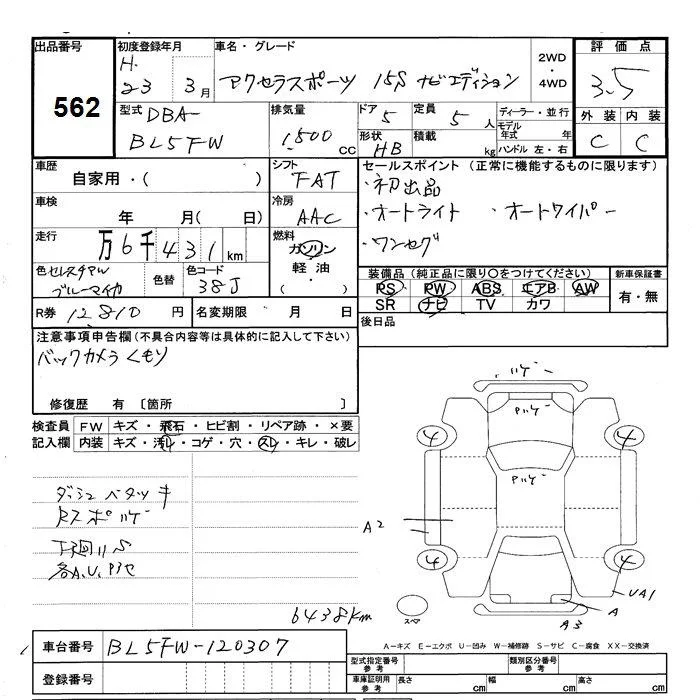 出品番号
562
初度登録年月
H.
23 3月
車名・グレード
アクセラスポーツ 15S ナビエディション
2WD
・
4WD
評価点
3.5
外装 内装
C C
型式 DBA-
BL5FW
排気量
1,500 cc
ドア 5
形状 HB
定員 5 人
積載 kg
ディーラー・並行
モデル年式 年
ハンドル 左・右
車歴
自家用・( )
車検
年 月( 日)
走行
万6千431km
色 セレスチアル
ブルーマイカ
色替
色コード
38J
シフト
FAT
冷房
AAC
燃料
ガソリン
軽油
・( )
セールスポイント (正常に機能するものに限ります)
・初出品
・オートライト ・オートワイパー
・ワンセグ
装備品(純正品に限り○をつけてください)
PS PW ABS エアB AW
SR ナビ TV カワ
新車保証書
有・無
R券 12810円
名変期限 月 日
後日品
注意事項申告欄(不具合内容等は具体的に記入して下さい)
バックカメラくもり
修復歴 有 〔箇所 〕
検査員記入欄
FW キズ・飛石・ヒビ割・リペア跡・×要
内装 キズ・汚れ・コゲ・穴・スレ・キレ・破レ
ダッシュベタツキ
下廻りS
各A,U,
6438km
ハゲ
Pハゲ
Pハゲ
4
4
4
4
A2
UA1
A
A3
スペア
A-キズ E-エクボ U-凹み W-補修跡 S-サビ C-腐食 XX-交換済
車台番号 BL5FW-120307
登録番号
型式指定番号
参考
類別区分番号
参考
車庫証明用
参考
長さ cm 幅 cm 高さ cm